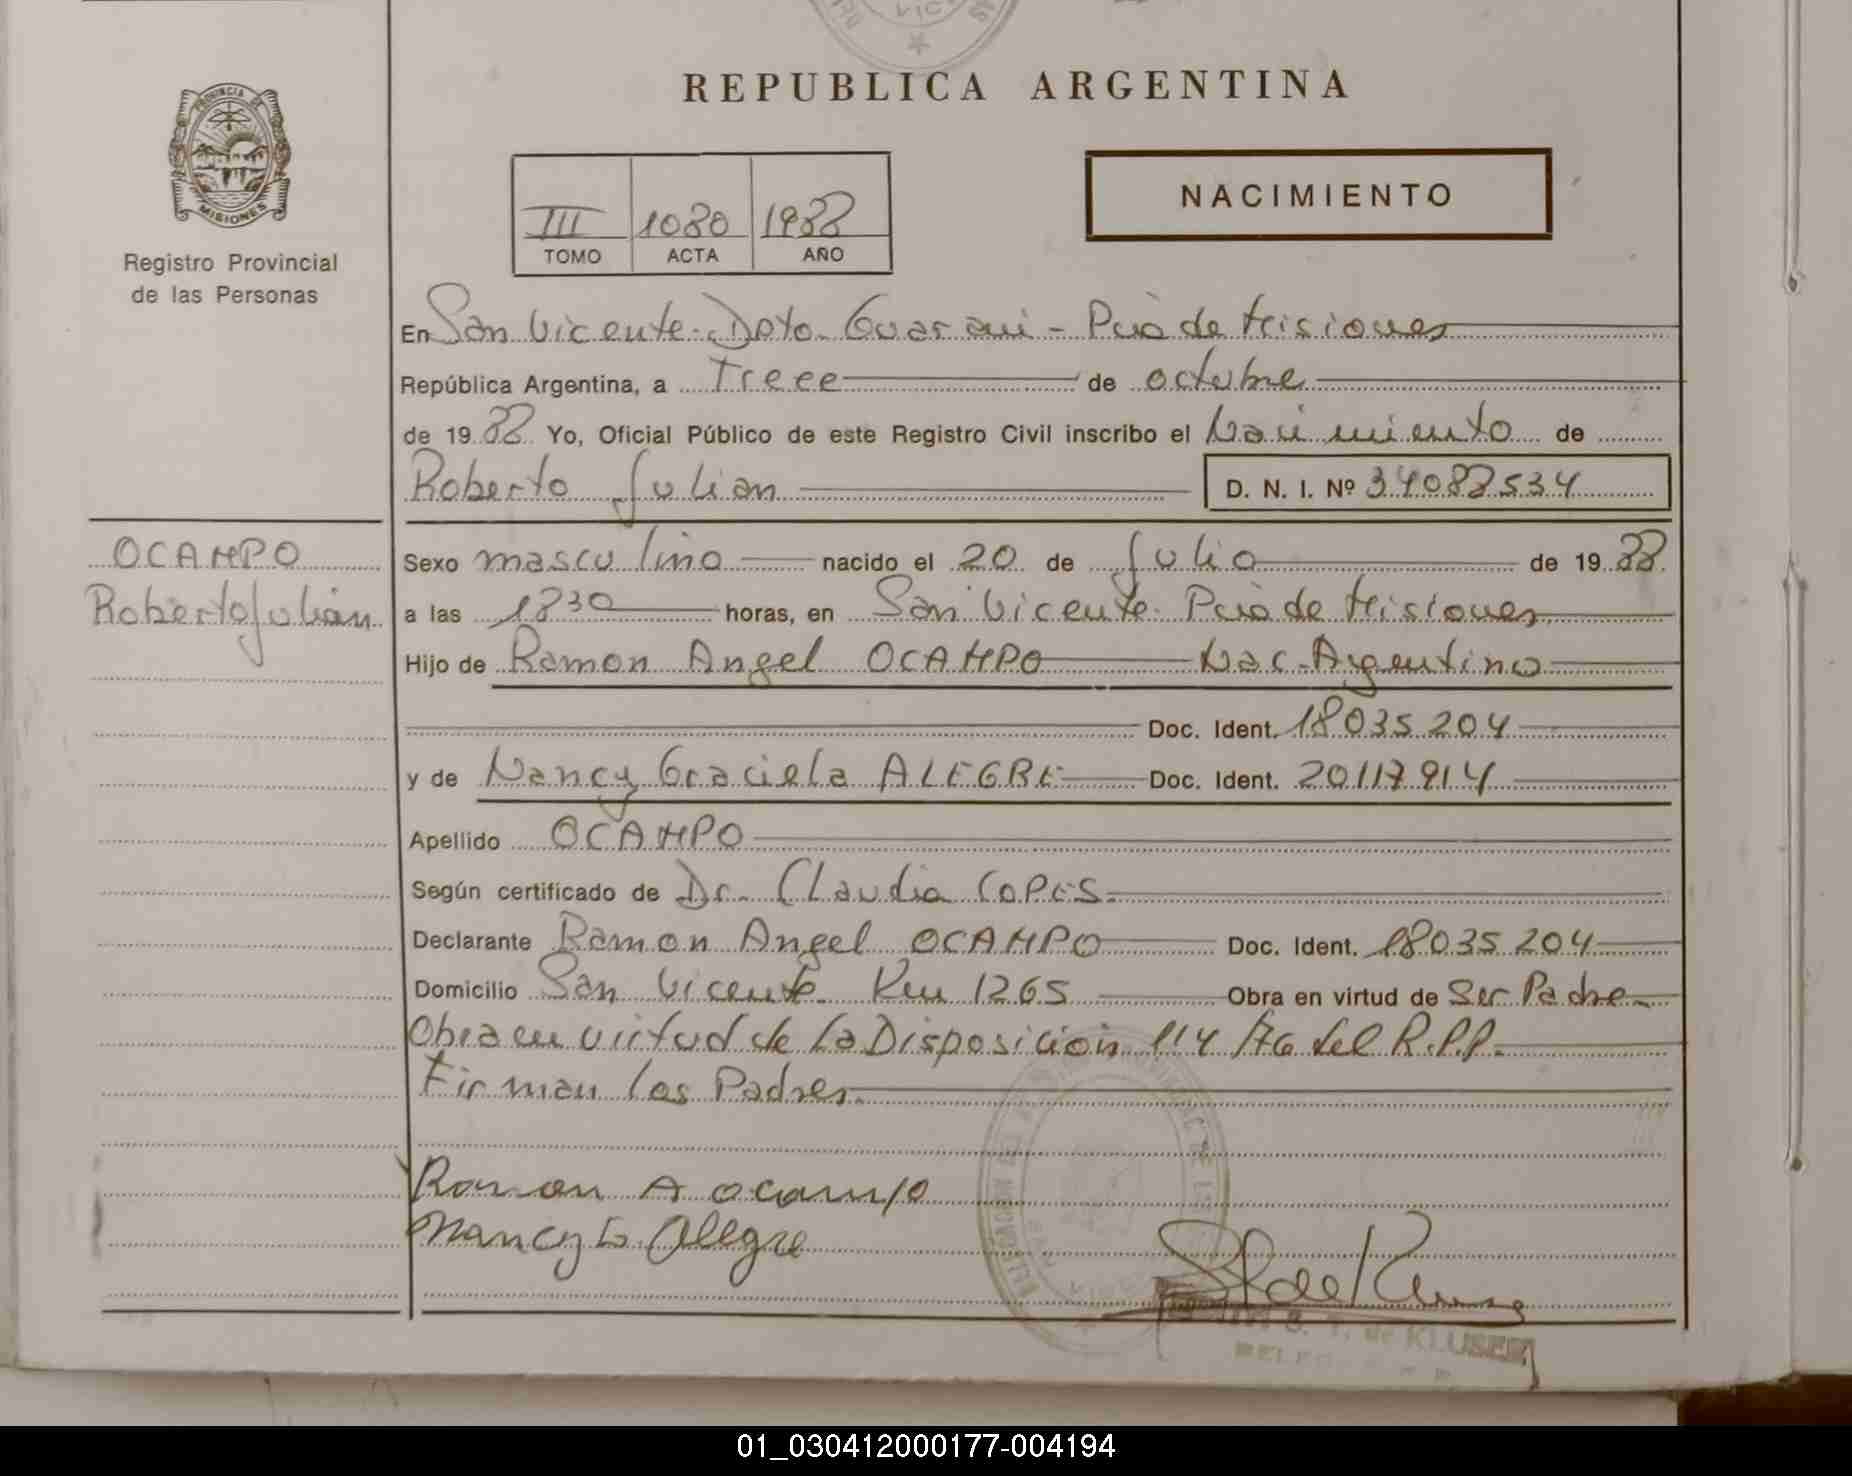 REPUBLICA ARGENTINA
PROVINCIA DE
MISIONES
Registro Provincial
de las Personas
NACIMIENTO
III 1080 1988
TOMO ACTA AÑO
En San Vicente. Dpto. Guarani - Pcia de Misiones
República Argentina, a Trece de octubre
de 1988 Yo, Oficial Público de este Registro Civil inscribo el Nacimiento de
Roberto Julian D. N. I. Nº 34088534
OCAMPO
Roberto Julián
Sexo masculino nacido el 20 de Julio de 1988
a las 1830 horas, en San Vicente. Pcia de Misiones
Hijo de Ramon Angel OCAMPO Nac. Argentino
Doc. Ident. 18035204
y de Nancy Graciela ALEGRE Doc. Ident. 20117914
Apellido OCAMPO
Según certificado de Dr. Claudia COPES.
Declarante Ramon Angel OCAMPO Doc. Ident. 18035204
Domicilio San Vicente Km 1265 Obra en virtud de Ser Padre
Obra en virtud de la Disposición 114/76 del R.P.P.
Firman los Padres.
Ramon A Ocampo
Nancy G. Alegre
S. T. de KLUSE
01_030412000177-004194